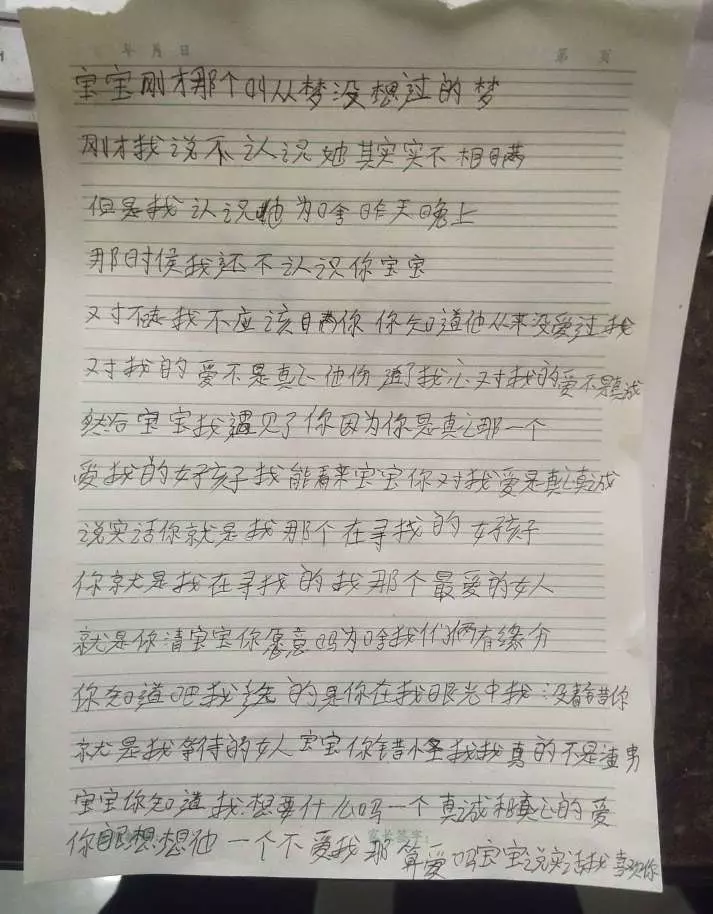 年 月 日 第 页
宝宝刚才那个叫从梦没想过的梦
刚才我说不认识她其实实不相瞒
但是我认识她为啥昨天晚上
那时候我还不认识你宝宝
对不起我不应该瞒你你知道他从来没爱过我
对我的爱不是真心他伤透了我心对我的爱不是真诚
然后宝宝我遇见了你因为你是真心那一个
爱我的女孩子我能看来宝宝你对我爱是真心真诚
说实话你就是我那个在寻找的女孩子
你就是我在寻找的我那个最爱的女人
就是你清宝宝你愿意吗为啥我们俩有缘分
你知道吧我选的是你在我眼光中我没看错你
就是我等待的女人宝宝你错怪我我真的不是渣男
宝宝你知道我想要什么吗一个真诚和真心的爱
你想想他一个不爱我那算爱吗宝宝说实话我喜欢你
家长签字: